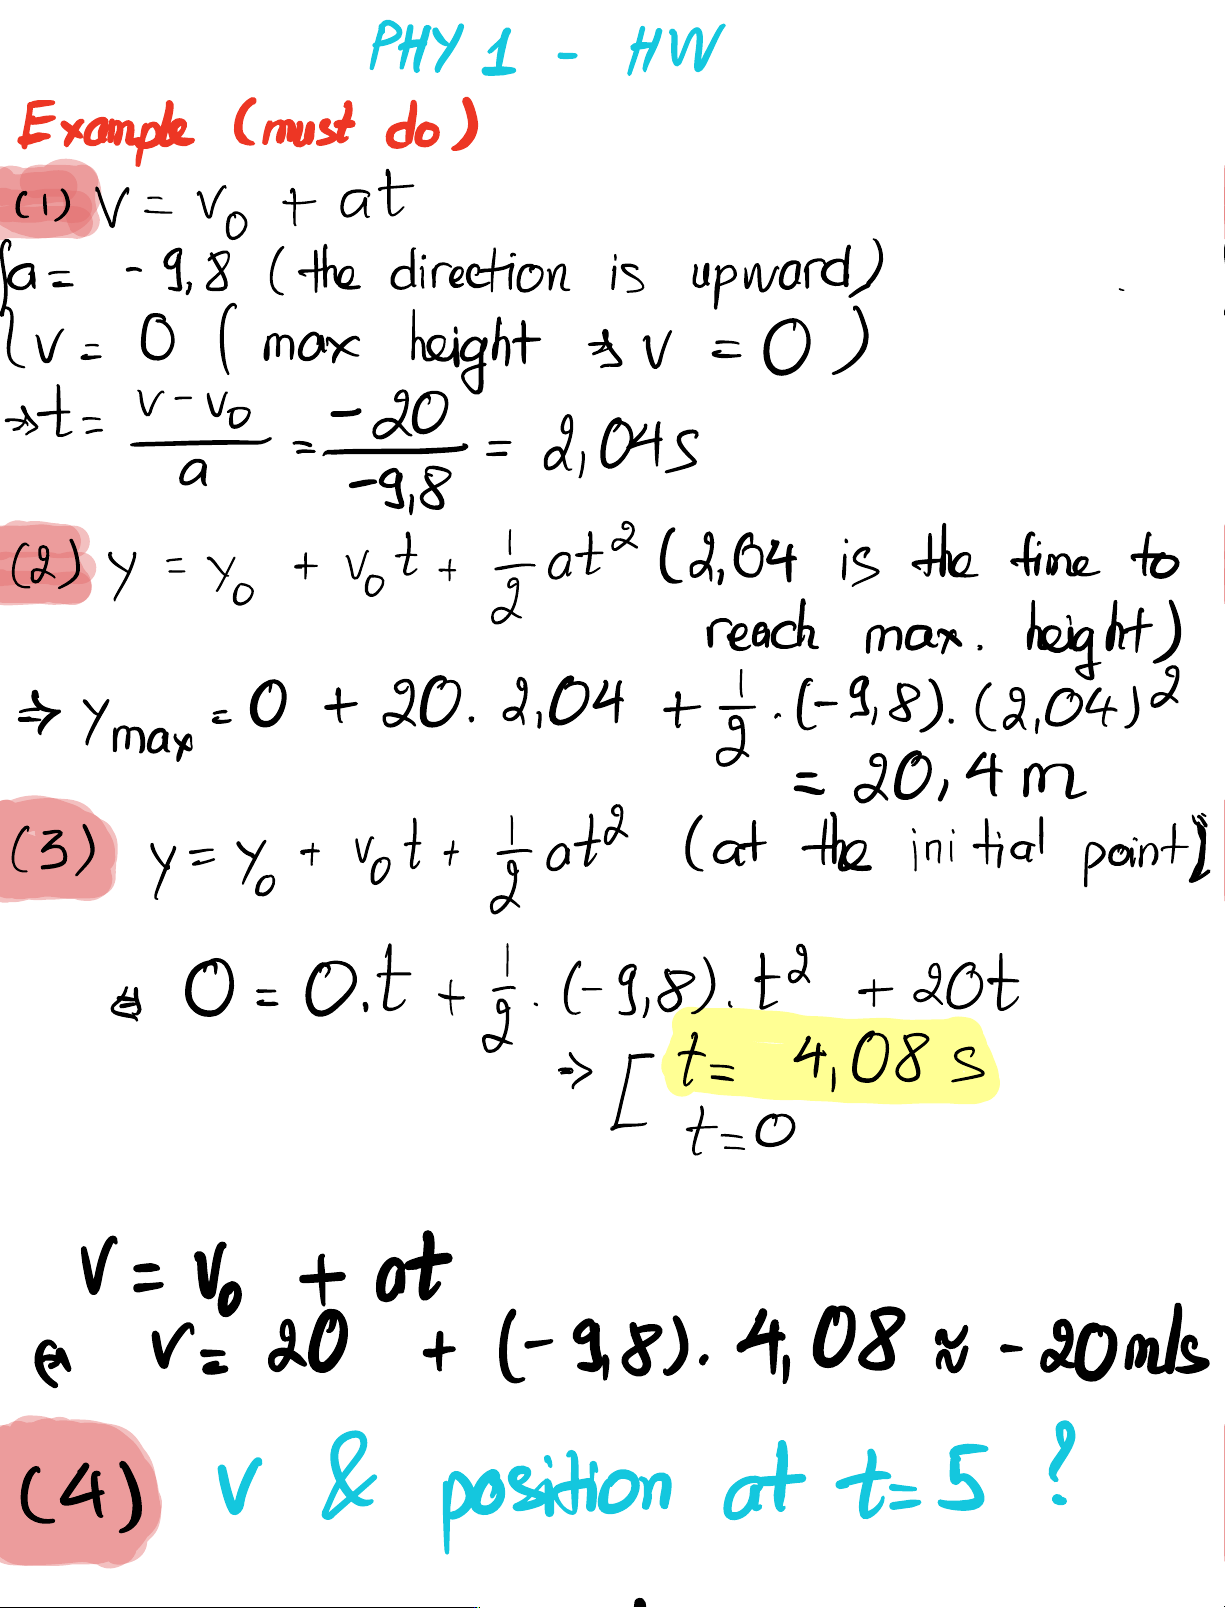 PHY 1 - HW
Example (must do)
(1) v = v₀ + at
{ a = -9,8 (the direction is upward)
v = 0 (max height → v = 0)
→ t = (v - v₀)/a = -20/-9,8 = 2,04s
(2) y = y₀ + v₀t + 1/2 at² (2,04 is the time to
reach max. height)
⇒ y max = 0 + 20. 2,04 + 1/2 . (-9,8). (2,04)²
= 20,4 m
(3) y = y₀ + v₀t + 1/2 at² (at the initial point)
⇔ 0 = 0.t + 1/2 . (-9,8). t² + 20t
→ [ t = 4,08 s
t = 0
v = v₀ + at
⇔ v = 20 + (-9,8). 4,08 ≈ -20 m/s
(4) v & position at t = 5 ?